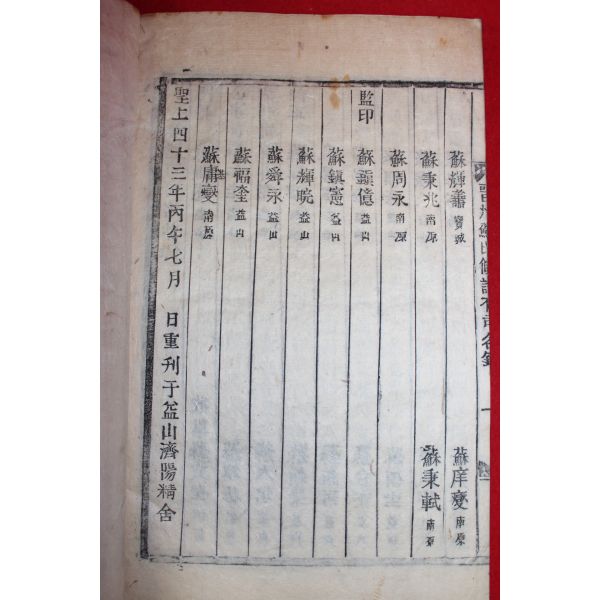 蘇輝 寶城
蘇庠夔 南原
蘇秉兆 南原
蘇秉軾 南原
蘇周永 南原
監印
蘇鎭億 益山
蘇鎭憲 益山
蘇輝晥 益山
蘇舜永 益山
蘇福奎 益山
蘇庸夔 南原
聖上四十三年丙午七月 日重刊于益山濟陽精舍